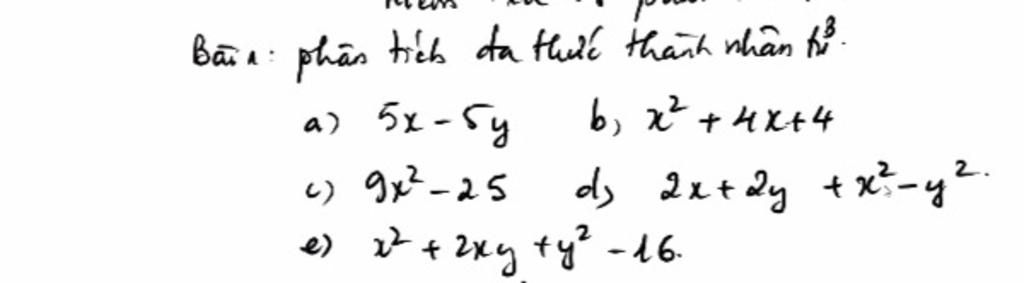 Bài 1: phân tích đa thức thành nhân tử.
a) 5x - 5y b) x² + 4x + 4
c) 9x² - 25 d) 2x + 2y + x² - y².
e) x² + 2xy + y² - 16.